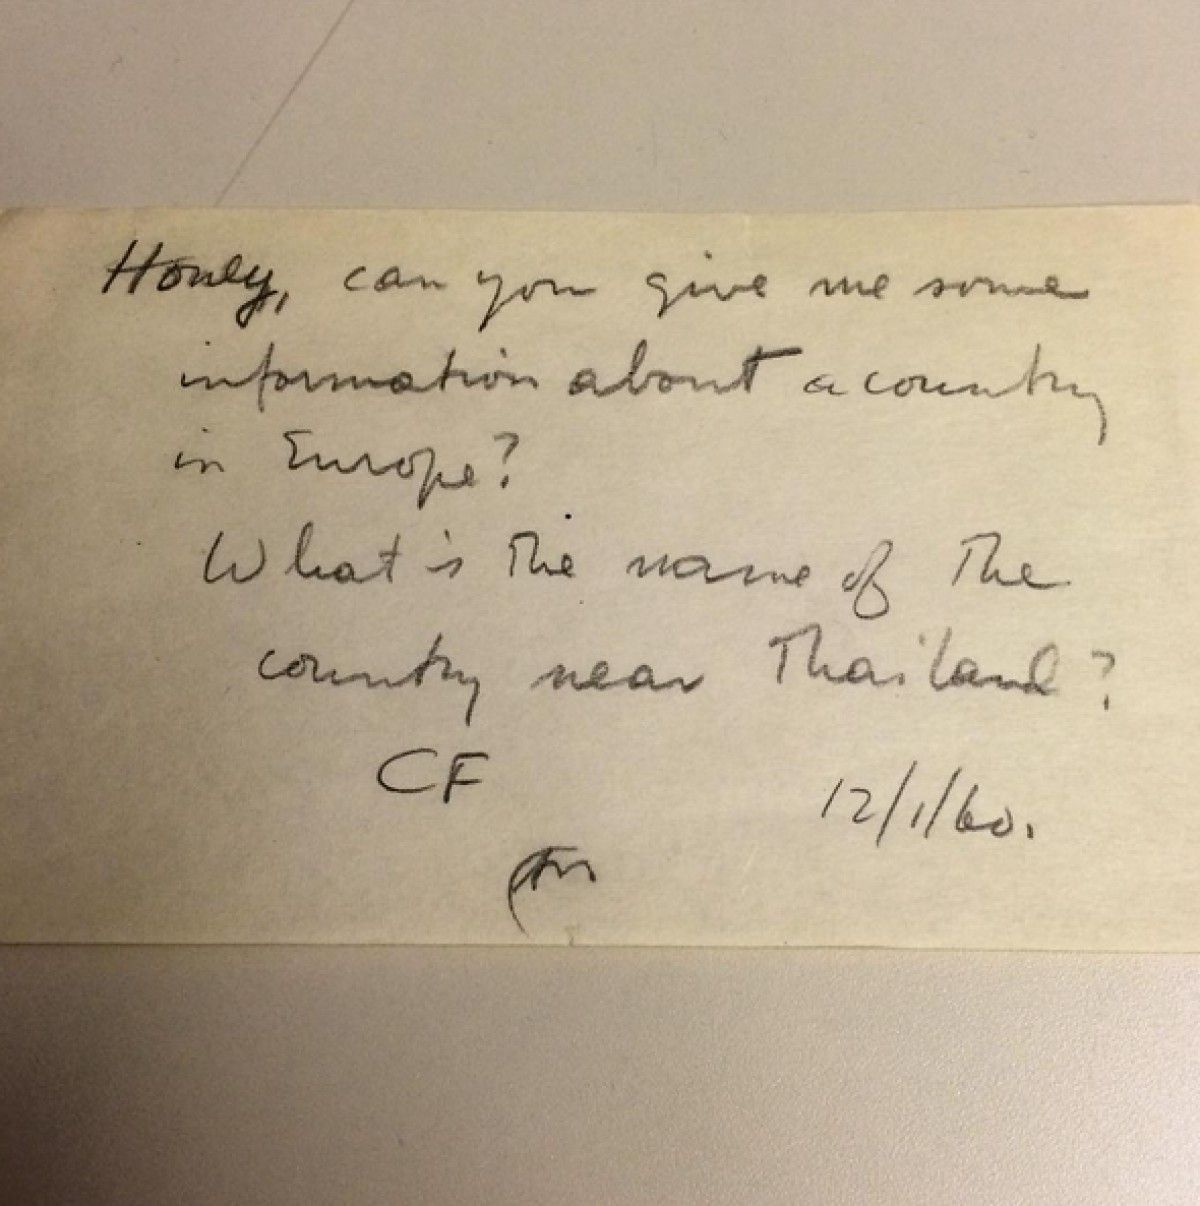 Honey, can you give me some
information about a country
in Europe?
What is the name of the
country near Thailand?
CF
12/1/60.